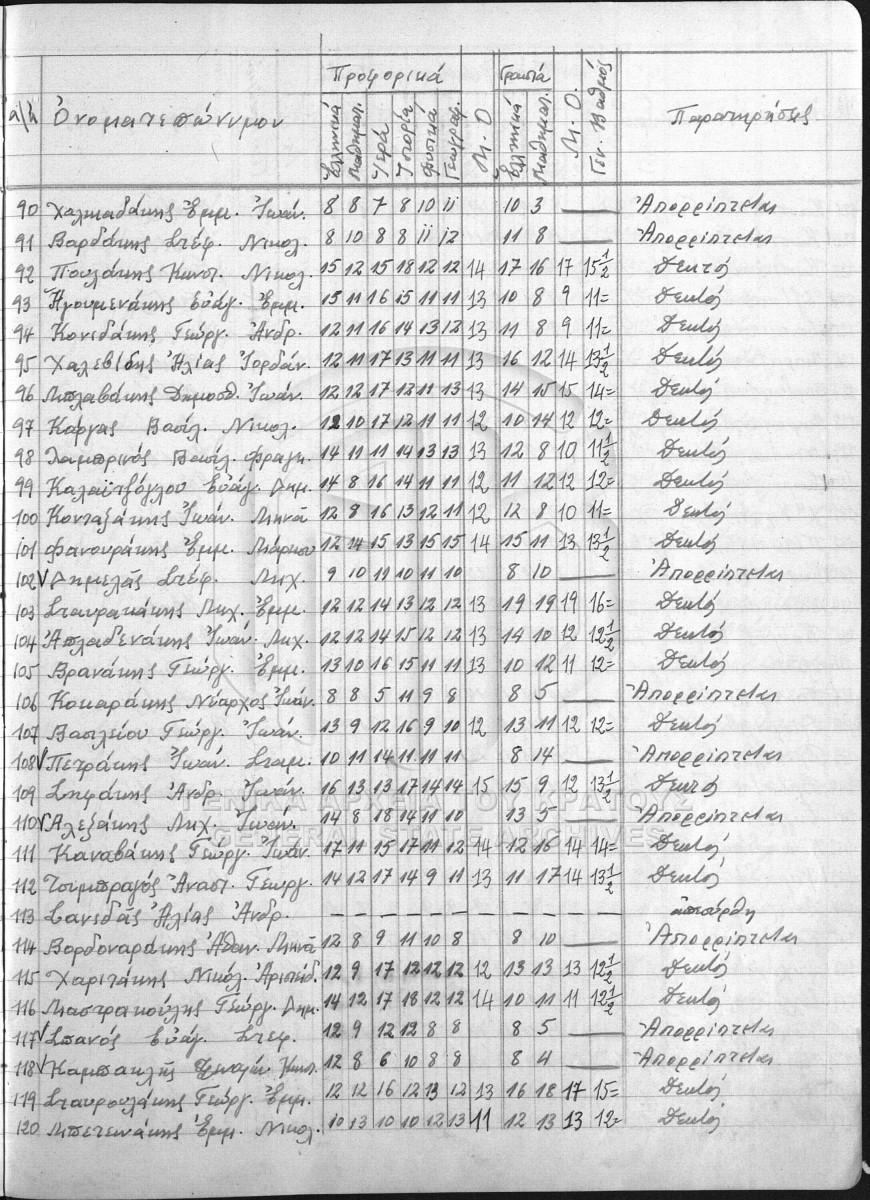 Προφορικά Γραπτά
α/α Ὀνοματεπώνυμον Ἑλληνικά Μαθηματ. Ἱερά Ἱστορία Φυσικά Γεωγραφ. Μ.Ο. Ἑλληνικά Μαθηματ. Μ.Ο. Γεν. Βαθμός Παρατηρήσεις
90 Χαλκιαδάκης Ἐμμ. Ἰωάν. 8 8 7 8 10 11 10 3 — Ἀπορρίπτεται
91 Βαρδάκης Στέφ. Νικολ. 8 10 8 8 11 12 11 8 — Ἀπορρίπτεται
92 Πουλάκης Κωνστ. Νικολ. 15 12 15 18 12 12 14 17 16 17 15½ Δεκτός
93 Ἡγουμενάκης Εὐάγ. Ἐμμ. 15 11 16 15 11 11 13 10 8 9 11= Δεκτός
94 Κονιδάκης Γεώργ. Ἀνδρ. 12 11 16 14 13 12 13 11 8 9 11= Δεκτός
95 Χαλεβίδης Ἠλίας Ἰορδάν. 12 11 17 13 11 11 13 16 12 14 13½ Δεκτός
96 Μπλαβάκης Δημοσθ. Ἰωάν. 12 12 17 12 11 13 13 14 15 15 14= Δεκτός
97 Κάργας Βασίλ. Νικολ. 12 10 17 12 11 11 12 10 14 12 12= Δεκτός
98 Λαμπρινός Βασίλ. Φραγκ. 14 11 11 14 13 13 13 12 8 10 11½ Δεκτός
99 Καλαϊτζόγλου Εὐάγ. Δημ. 14 8 16 14 11 11 12 11 12 12 12= Δεκτός
100 Κονταξάκης Ἰωάν. Μηνᾶ 12 8 16 13 12 11 12 12 8 10 11= Δεκτός
101 Φανουράκης Ἐμμ. Μάρκου 12 14 15 13 15 15 14 15 11 13 13½ Δεκτός
102 √ Δημελᾶς Στέφ. Μιχ. 9 10 11 10 11 10 8 10 — Ἀπορρίπτεται
103 Σταυρακάκης Μιχ. Ἐμμ. 12 12 14 13 12 12 13 19 19 19 16= Δεκτός
104 Ἀπλαδενάκης Ἰωάν. Μιχ. 12 12 14 15 12 12 13 14 10 12 12½ Δεκτός
105 Βρανάκης Γεώργ. Ἐμμ. 13 10 16 15 11 11 13 10 12 11 12= Δεκτός
106 Κοκαράκης Νέαρχος Ἰωάν. 8 8 5 11 9 8 8 5 — Ἀπορρίπτεται
107 Βασιλείου Γεώργ. Ἰωάν. 13 9 12 16 9 10 12 13 11 12 12= Δεκτός
108 √ Πετράκης Ἰωάν. Σταμ. 10 11 14 11 11 11 8 14 — Ἀπορρίπτεται
109 Σηφάκης Ἀνδρ. Ἰωάν. 16 13 13 17 14 14 15 15 9 12 13½ Δεκτός
110 √ Ἀλεξάκης Μιχ. Ἰωάν. 14 8 18 14 11 10 13 5 — Ἀπορρίπτεται
ΓΕΝΙΚΑ ΑΡΧΕΙΑ ΤΟΥ ΚΡΑΤΟΥΣ
GENERAL STATE ARCHIVES
111 Καναβάκης Γεώργ. Ἰωάν. 17 11 15 17 11 12 14 12 16 14 14= Δεκτός
112 Τσιμπραγός Ἀναστ. Γεωργ. 14 12 17 14 9 11 13 11 17 14 13½ Δεκτός
113 Σανιδᾶς Ἠλίας Ἀνδρ. – – – – – – – – – – –
114 Βορδοναράκης Ἀθαν. Μηνᾶ 12 8 9 11 10 8 8 10 — Ἀπορρίπτεται
115 Χαριτάκης Νικόλ. Ἀριστείδ. 12 9 17 12 12 12 12 13 13 13 12½ Δεκτός
116 Μαστρακούλης Γεώργ. Δημ. 14 12 17 18 12 12 14 10 11 11 12½ Δεκτός
117 √ Σπανός Εὐάγ. Στεφ. 12 9 12 12 8 8 8 5 — Ἀπορρίπτεται
118 √ Καμπακλῆς Κωνστ. 12 8 6 10 8 8 8 4 — Ἀπορρίπτεται
119 Σταυρουλάκης Γεώργ. Ἐμμ. 12 12 16 12 13 12 13 16 18 17 15= Δεκτός
120 Μπετεινάκης Ἐμμ. Νικολ. 10 13 10 10 12 13 11 12 13 13 12= Δεκτός